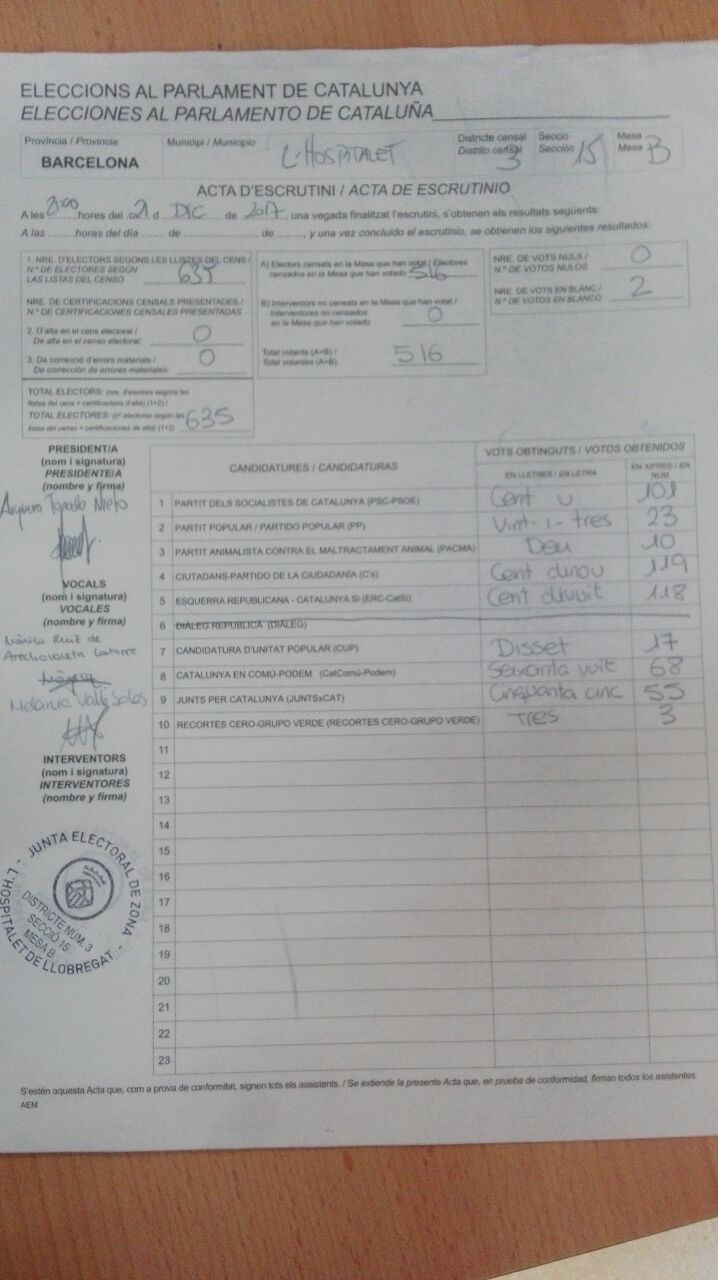 ELECCIONS AL PARLAMENT DE CATALUNYA
ELECCIONES AL PARLAMENTO DE CATALUÑA
Província / Provincia
BARCELONA
Municipi / Municipio
L'HOSPITALET
Districte censal
Distrito censal
3
Secció
Sección
15
Mesa
Mesa
B
ACTA D'ESCRUTINI / ACTA DE ESCRUTINIO
A les 21:00 hores del dia 21 d DIC de 2017, una vegada finalitzat l'escrutini, s'obtenen els resultats següents:
A las ......... horas del día ........ de .................. de ........., y una vez concluido el escrutinio, se obtienen los siguientes resultados:
1. NRE. D'ELECTORS SEGONS LES LLISTES DEL CENS /
N.º DE ELECTORES SEGÚN
LAS LISTAS DEL CENSO
635
NRE. DE CERTIFICACIONS CENSALS PRESENTADES /
N.º DE CERTIFICACIONES CENSALES PRESENTADAS
2. D'alta en el cens electoral /
De alta en el censo electoral:
0
3. De correcció d'errors materials /
De corrección de errores materiales:
0
TOTAL ELECTORS: (nre. d'electors segons les
llistes del cens + certificacions d'alta) (1+2) /
TOTAL ELECTORES: (nº electores según las
listas del censo + certificaciones de alta) (1+2)
635
A) Electors censats en la Mesa que han votat / Electores
censados en la Mesa que han votado
516
B) Interventors no censats en la Mesa que han votat /
Interventores no censados
en la Mesa que han votado
0
Total votants (A+B) /
Total votantes (A+B)
516
NRE. DE VOTS NULS /
N.º DE VOTOS NULOS
0
NRE. DE VOTS EN BLANC /
N.º DE VOTOS EN BLANCO
2
PRESIDENT/A
(nom i signatura)
PRESIDENTE/A
(nombre y firma)
Topado Nieto
VOCALS
(nom i signatura)
VOCALES
(nombre y firma)
Mònica Ruiz de
Melania Valle Salas
INTERVENTORS
(nom i signatura)
INTERVENTORES
(nombre y firma)
JUNTA ELECTORAL DE ZONA - L'HOSPITALET DE LLOBREGAT -
DISTRICTE NÚM. 3
SECCIÓ 15
MESA B
CANDIDATURES / CANDIDATURAS
VOTS OBTINGUTS / VOTOS OBTENIDOS
EN LLETRES / EN LETRA
EN XIFRES / EN NÚM.
1 PARTIT DELS SOCIALISTES DE CATALUNYA (PSC-PSOE) Cent u 101
2 PARTIT POPULAR / PARTIDO POPULAR (PP) Vint-i-tres 23
3 PARTIT ANIMALISTA CONTRA EL MALTRACTAMENT ANIMAL (PACMA) Deu 10
4 CIUTADANS-PARTIDO DE LA CIUDADANÍA (C's) Cent dinou 119
5 ESQUERRA REPUBLICANA - CATALUNYA SÍ (ERC-CatSí) Cent divuit 118
6 DIÀLEG REPÚBLICA (DIÀLEG)
7 CANDIDATURA D'UNITAT POPULAR (CUP) Disset 17
8 CATALUNYA EN COMÚ-PODEM (CatComú-Podem) Seixanta vuit 68
9 JUNTS PER CATALUNYA (JUNTSxCAT) Cinquanta cinc 55
10 RECORTES CERO-GRUPO VERDE (RECORTES CERO-GRUPO VERDE) Tres 3
11
12
13
14
15
16
17
18
19
20
21
22
23
S'estén aquesta Acta que, com a prova de conformitat, signen tots els assistents. / Se extiende la presente Acta que, en prueba de conformidad, firman todos los asistentes.
AEM